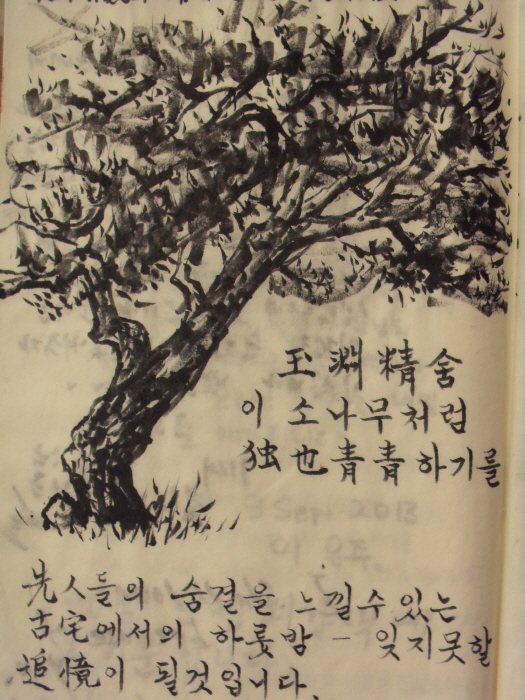 玉淵精舍
이 소나무처럼
独也靑靑하기를
先人들의 숨결을 느낄수 있는
古宅에서의 하룻밤 - 잊지못할
追憶이 될것입니다